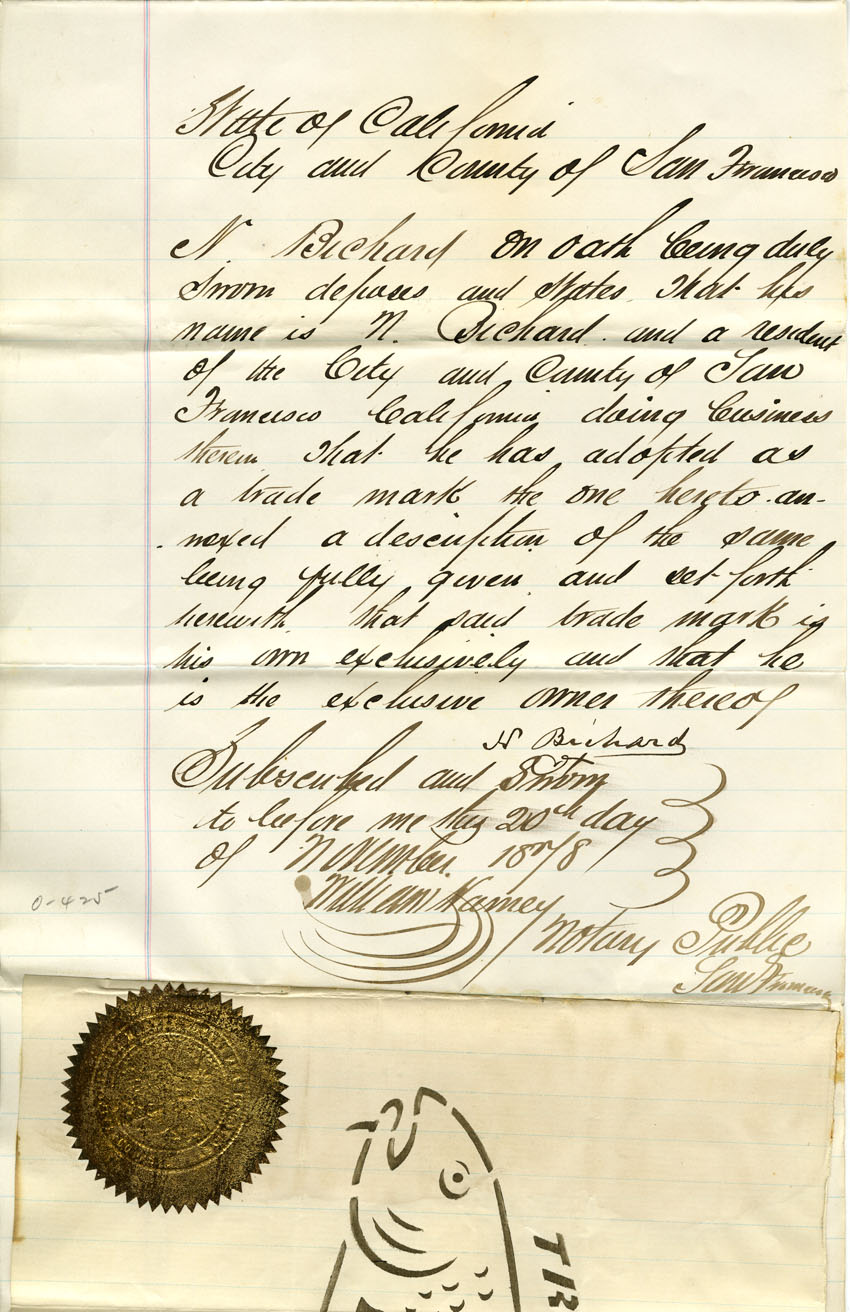 State of California
City and County of San Francisco
N. Bichard on oath being duly
Sworn deposes and States. That his
name is N. Bichard. and a resident
of the City and County of San
Francisco California doing business
therein That he has adopted as
a trade mark the one hereto an-
nexed a description of the same
being fully given and set forth
herewith that said trade mark is
his own exclusively and that he
is the exclusive owner thereof
N Bichard
Subscribed and Sworn
to before me this 20th day
of November 1878
William Harney
Notary Public
San Francisco
0-425
TR